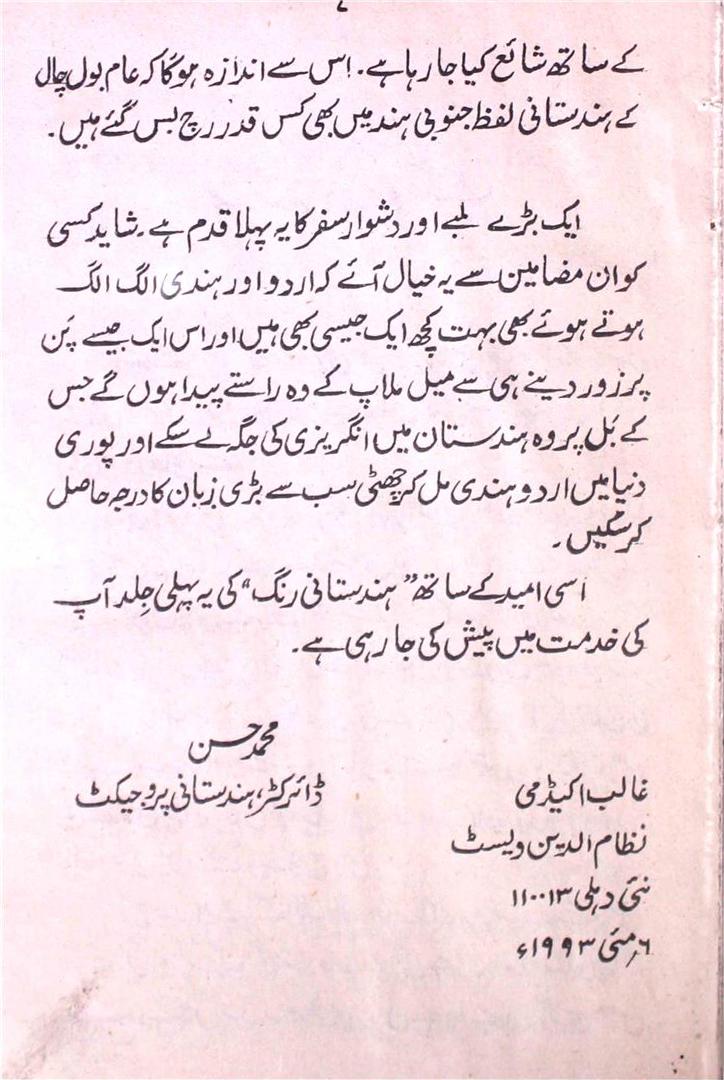 ۷
کے ساتھ شائع کیا جا رہا ہے۔ اس سے اندازہ ہوگا کہ عام بول چال
کے ہندستانی لفظ جنوبی ہند میں بھی کس قدر رچ بس گئے ہیں۔
ایک بڑے لمبے اور دشوار سفر کا یہ پہلا قدم ہے۔ شاید کسی
کو ان مضامین سے یہ خیال آئے کہ اردو اور ہندی الگ الگ
ہوتے ہوئے بھی بہت کچھ ایک جیسی بھی ہیں اور اس ایک جیسے پن
پر زور دینے ہی سے میل ملاپ کے وہ راستے پیدا ہوں گے جس
کے بَل پر وہ ہندستان میں انگریزی کی جگہ لے سکے اور پوری
دنیا میں اردو ہندی مل کر چھٹی سب سے بڑی زبان کا درجہ حاصل
کرسکیں۔
اسی امید کے ساتھ ”ہندستانی رنگ“ کی یہ پہلی جِلد آپ
کی خدمت میں پیش کی جا رہی ہے۔
محمد حسن
ڈائرکٹر، ہندستانی پروجیکٹ
غالب اکیڈمی
نظام الدین ویسٹ
نئی دہلی ۱۱۰۰۱۳
۶؍مئی ۱۹۹۳ء